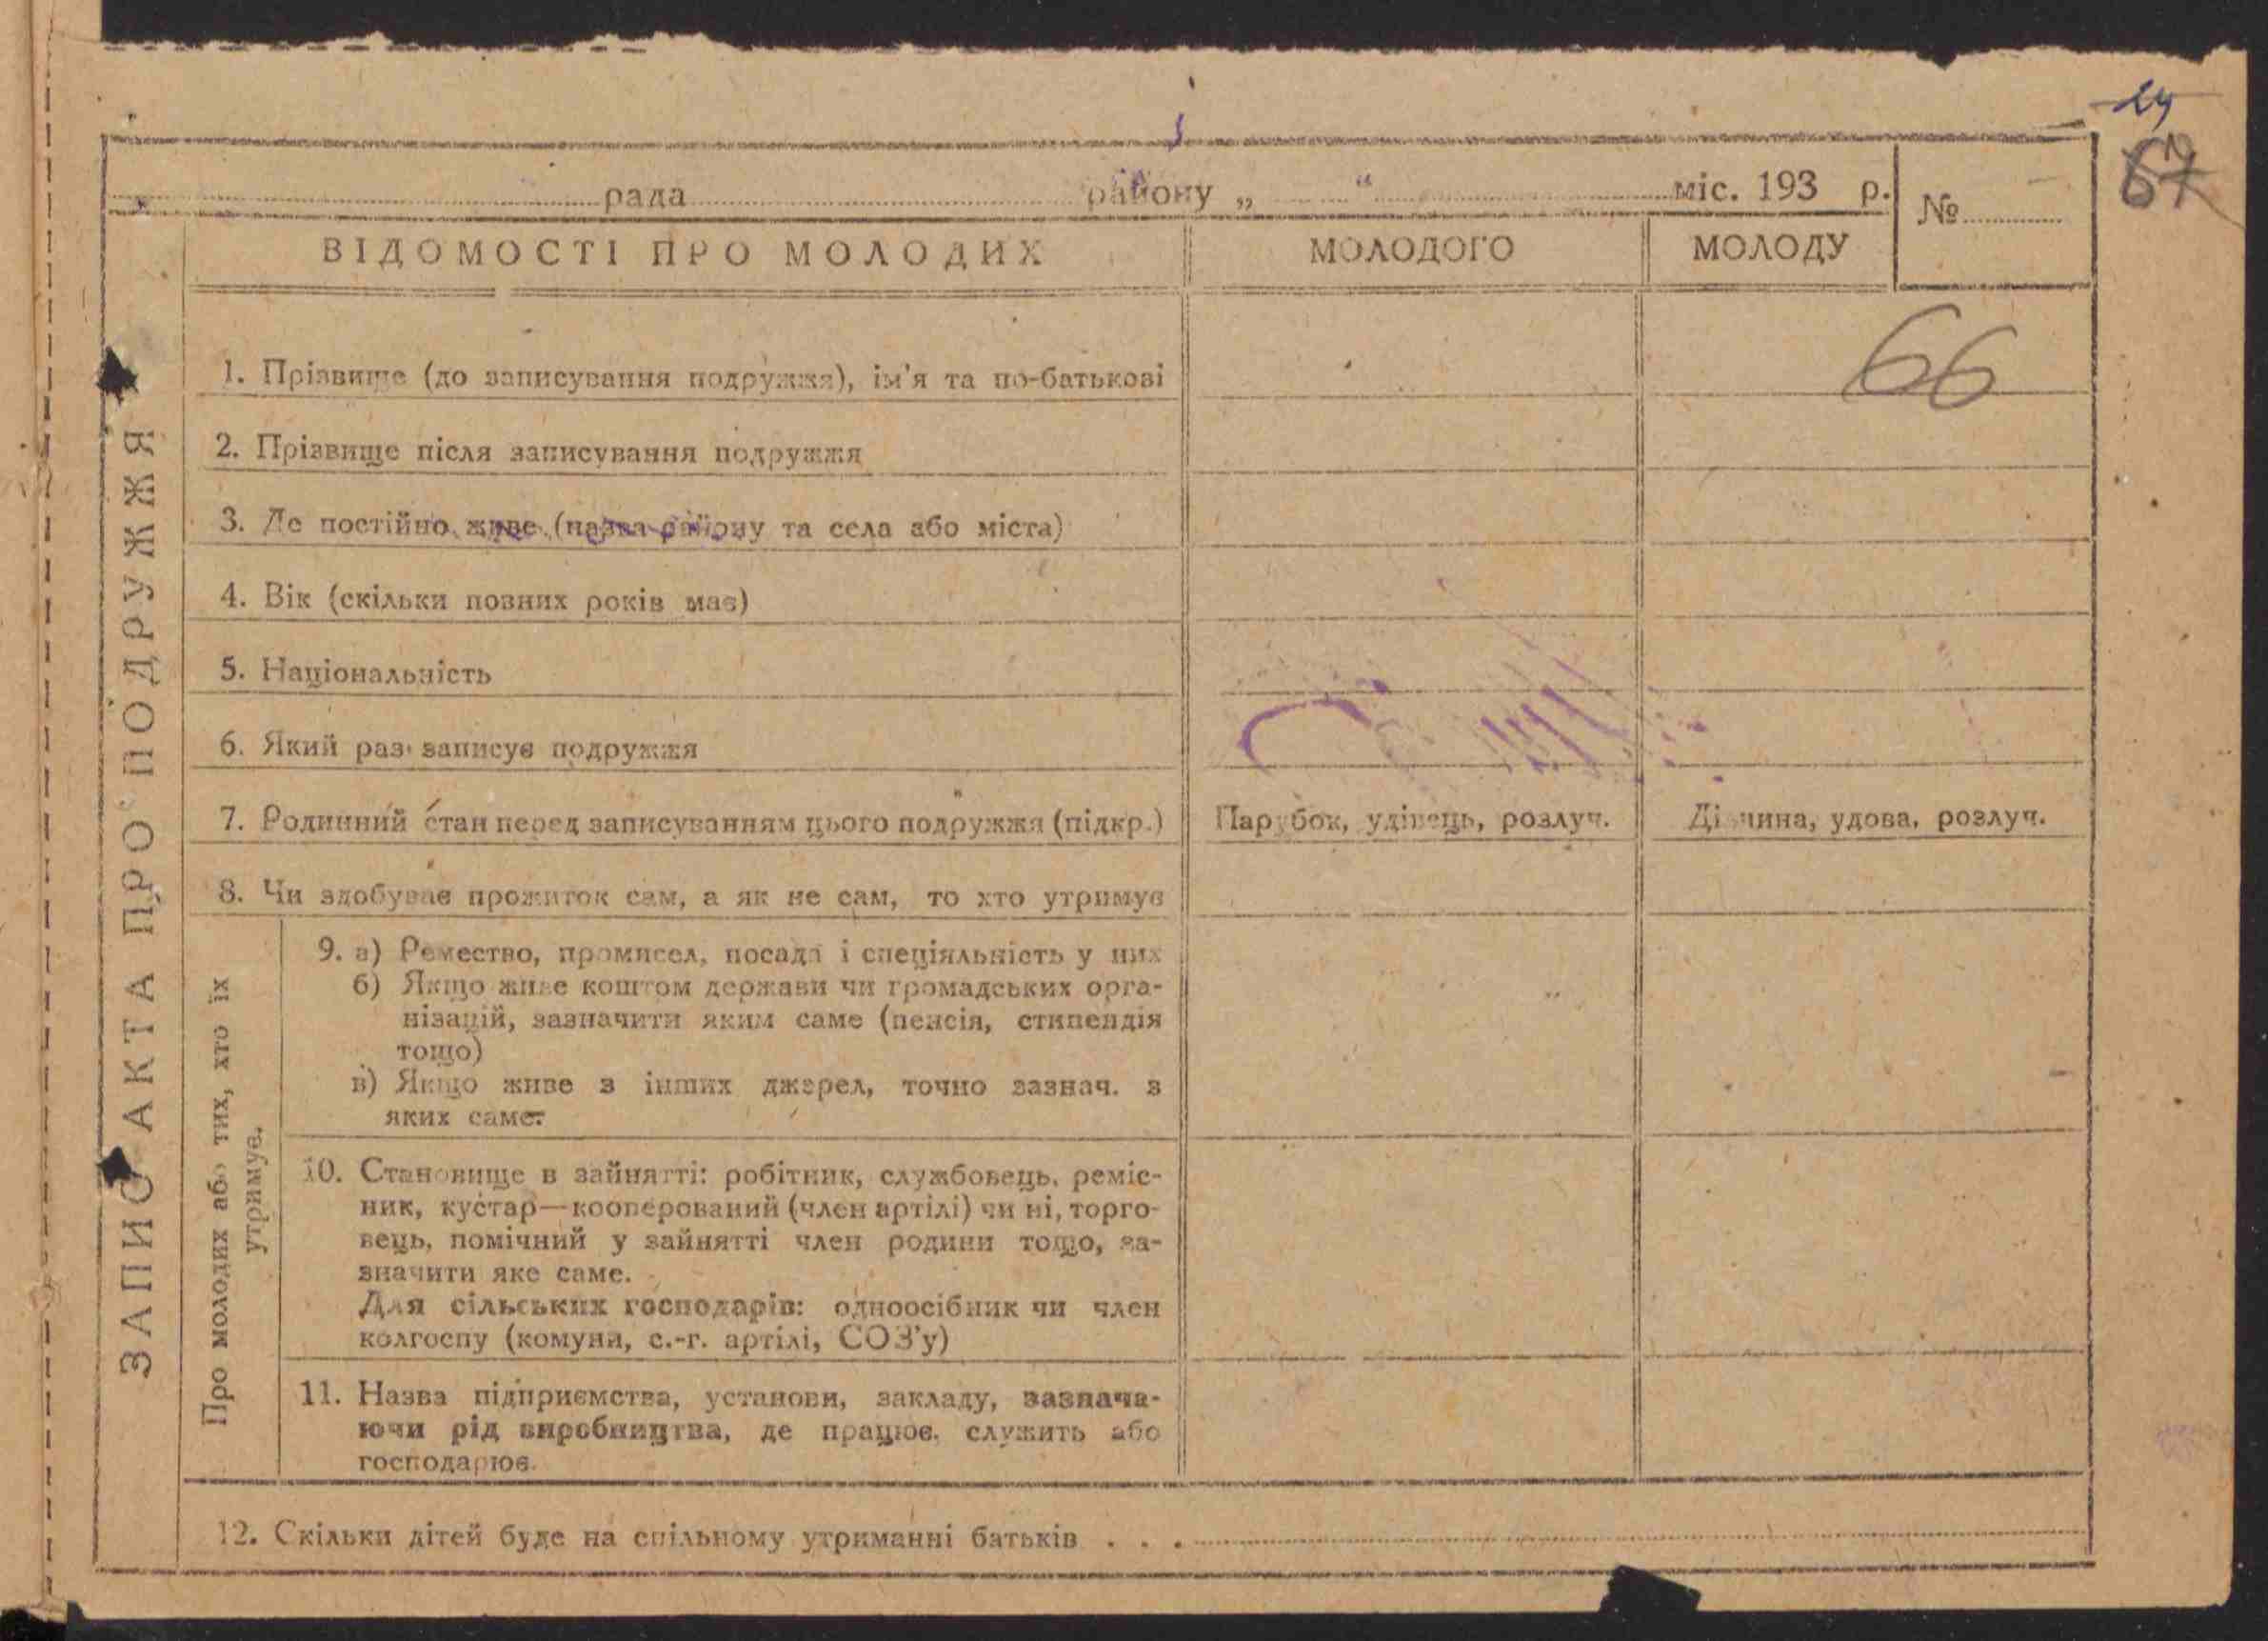 24
67
рада району „ “ міс. 193 р. №
ВІДОМОСТІ ПРО МОЛОДИХ МОЛОДОГО МОЛОДУ
66
ЗАПИС АКТА ПРО ПОДРУЖЖЯ
1. Прізвище (до записування подружжя), ім'я та по-батькові
2. Прізвище після записування подружжя
3. Де постійно живе (назва району та села або міста)
4. Вік (скільки повних років має)
5. Національність
6. Який раз записує подружжя
7. Родинний стан перед записуванням цього подружжя (підкр.) Парубок, удівець, розлуч. Дівчина, удова, розлуч.
8. Чи здобуває прожиток сам, а як не сам, то хто утримує
Про молодих або тих, хто їх
утримує.
9. а) Ремество, промисел, посада і спеціяльність у них
б) Якщо живе коштом держави чи громадських орга-
нізацій, зазначити яким саме (пенсія, стипендія
тощо)
в) Якщо живе з інших джерел, точно зазнач. з
яких саме.
10. Становище в зайнятті: робітник, службовець, реміс-
ник, кустар—кооперований (член артілі) чи ні, торго-
вець, помічний у зайнятті член родини тощо, за-
значити яке саме.
Для сільських господарів: одноосібник чи член
колгоспу (комуни, с.-г. артілі, СОЗ'у)
11. Назва підприємства, установи, закладу, зазнача-
ючи рід виробництва, де працює, служить або
господарює.
12. Скільки дітей буде на спільному утриманні батьків . . .